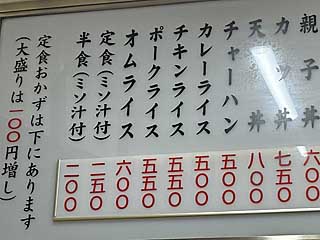 親子丼 六〇〇
カツ丼 七五〇
天丼 八〇〇
チャーハン 五五〇
カレーライス 五五〇
チキンライス 五五〇
ポークライス 五五〇
オムライス 六〇〇
定食(ミソ汁付) 二五〇
半食(ミソ汁付) 二〇〇
定食おかずは下にあります
(大盛りは一〇〇円増し)